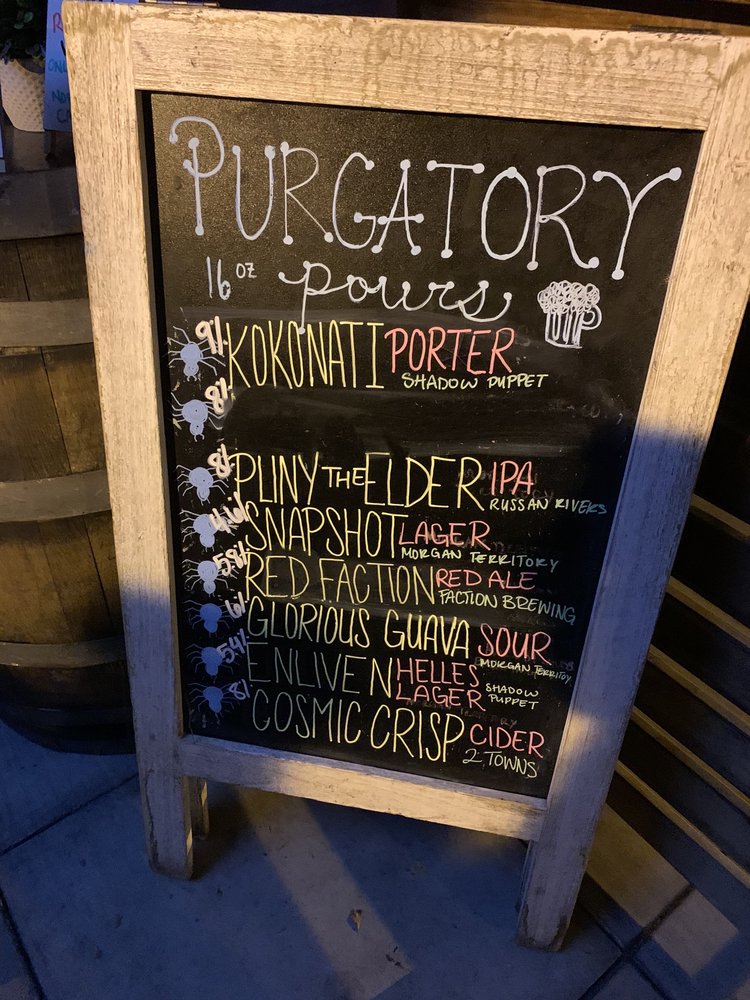 PURGATORY
16 oz pours
9% KOKONATI PORTER
SHADOW PUPPET
8%
8% PLINY THE ELDER IPA
RUSSAN RIVERS
4.6% SNAPSHOT LAGER
MORGAN TERRITORY
5.8% RED FACTION RED ALE
FACTION BREWING
6% GLORIOUS GUAVA SOUR
MORGAN TERRITOY
5.4% ENLIVEN HELLES LAGER
SHADOW PUPPET
8% COSMIC CRISP CIDER
2 TOWNS